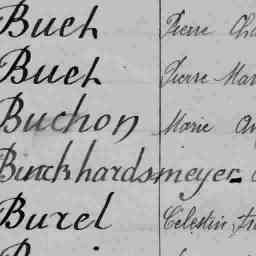 Buet Pierre
Buet Pierre
Buchon Marie
Burckhardsmeyer
Burel Célestin